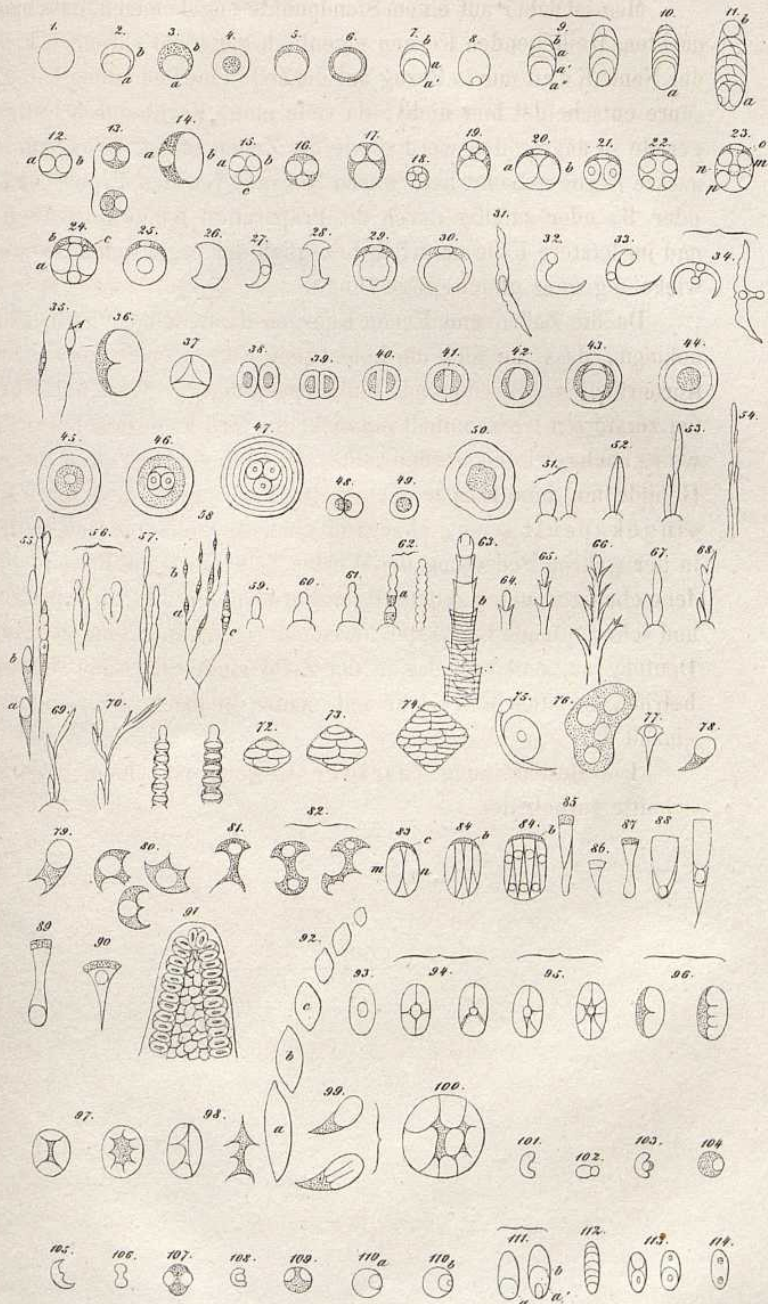 1. 2. 3. 4. 5. 6. 7. 8. 9. 10. 11.
b b b b a a' a" b
a a a a a
12. 13. 14. 15. 16. 17. 18. 19. 20. 21. 22. 23.
a b a b a b c a b n o m p
24. 25. 26. 27. 28. 29. 30. 31. 32. 33. 34.
b c a
35. 36. 37. 38. 39. 40. 41. 42. 43. 44.
45. 46. 47. 48. 49. 50. 51. 52. 53. 54.
55. 56. 57. 58. 59. 60. 61. 62. 63. 64. 65. 66. 67. 68.
b a b a c a b
69. 70. 72. 73. 74. 75. 76. 77. 78.
79. 80. 81. 82. 83. 84. 84. 85. 86. 87. 88.
m c n b b
89 90 91 92. 93. 94. 95. 96.
c
b
97. 98. a 99. 100. 101. 102. 103. 104
105. 106. 107. 108. 109. 110a 110b 111. 112. 113. 114.
b
a a'